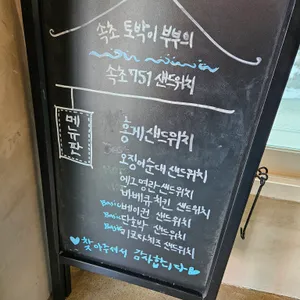 속초 토박이 부부의
속초751 샌드위치
메뉴판
홍게샌드위치
오징어순대 샌드위치
에그명란 샌드위치
바베큐치킨 샌드위치
베이컨 샌드위치
단호박 샌드위치
리코타치즈 샌드위치
♥찾아주셔서 감사합니다♥